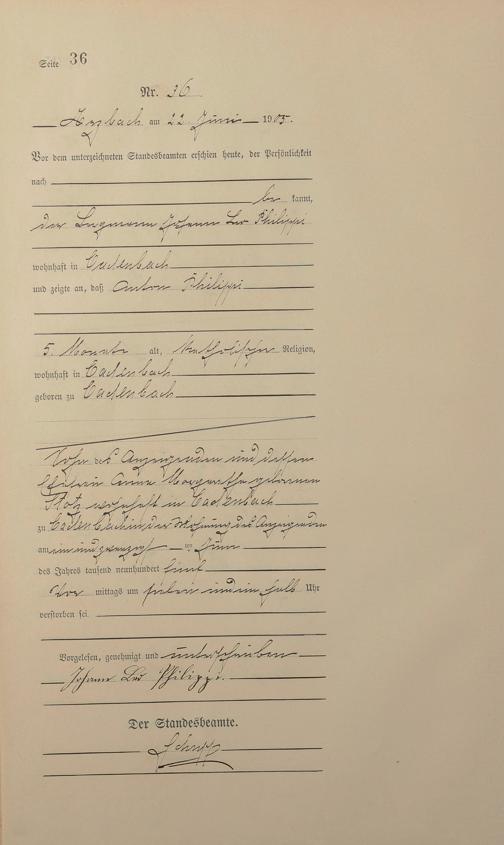 Seite 36
Nr. 36
Arzbach am 22 Juni 1905.
Vor dem unterzeichneten Standesbeamten erschien heute, der Persönlichkeit
nach
be kannt,
der Bergmann Johann Leo Philippi
wohnhaft in Cadenbach
und zeigte an, daß Anton Philippi
5 Monate alt, katholischer Religion,
wohnhaft in Cadenbach
geboren zu Cadenbach
Sohn des Anzeigenden und dessen
Ehefrau Anna Margaretha geborenen
Stotz wohnhaft in Cadenbach
zu Cadenbach in der Wohnung des Anzeigenden
am ein und zwanzigsten Juni
des Jahres tausend neunhundert fünf
Vor mittags um sieben und ein halb Uhr
verstorben sei.
Vorgelesen, genehmigt und unterschrieben
Johann Leo Philippi.
Der Standesbeamte.